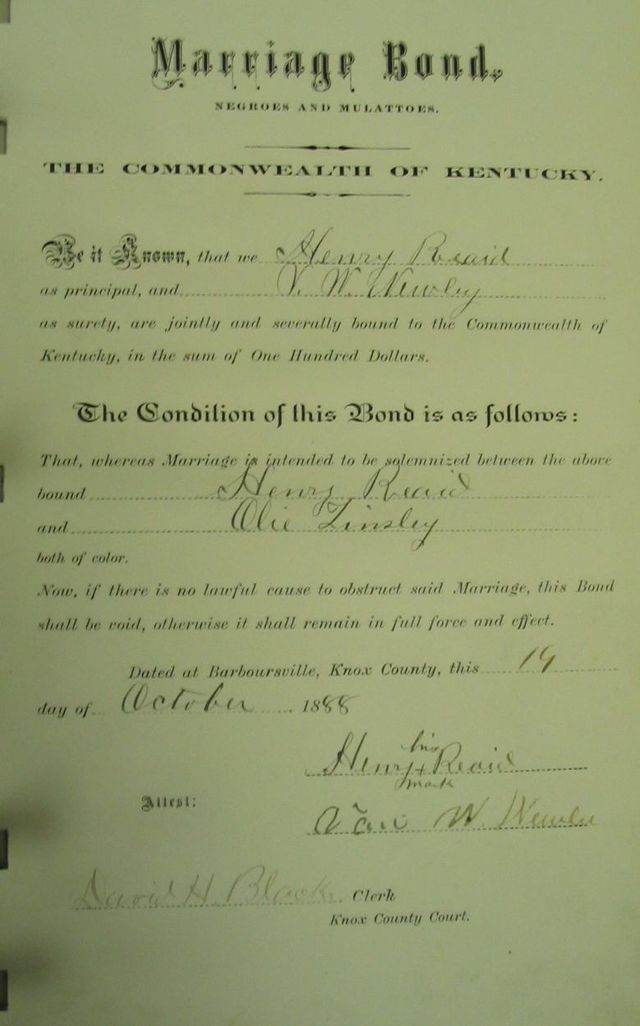 Marriage Bond.
NEGROES AND MULATTOES.
THE COMMONWEALTH OF KENTUCKY.
Be it Known, that we Henry Reaid
as principal, and V. W. Newley
as surety, are jointly and severally bound to the Commonwealth of
Kentucky, in the sum of One Hundred Dollars.
The Condition of this Bond is as follows:
That, whereas Marriage is intended to be solemnized between the above
bound Henry Reaid
and Olie Tinsley
both of color.
Now, if there is no lawful cause to obstruct said Marriage, this Bond
shall be void, otherwise it shall remain in full force and effect.
Dated at Barboursville, Knox County, this 19
day of October 1888
his
Henry + Reaid
mark
Attest:
W.
David H. Black Clerk
Knox County Court.